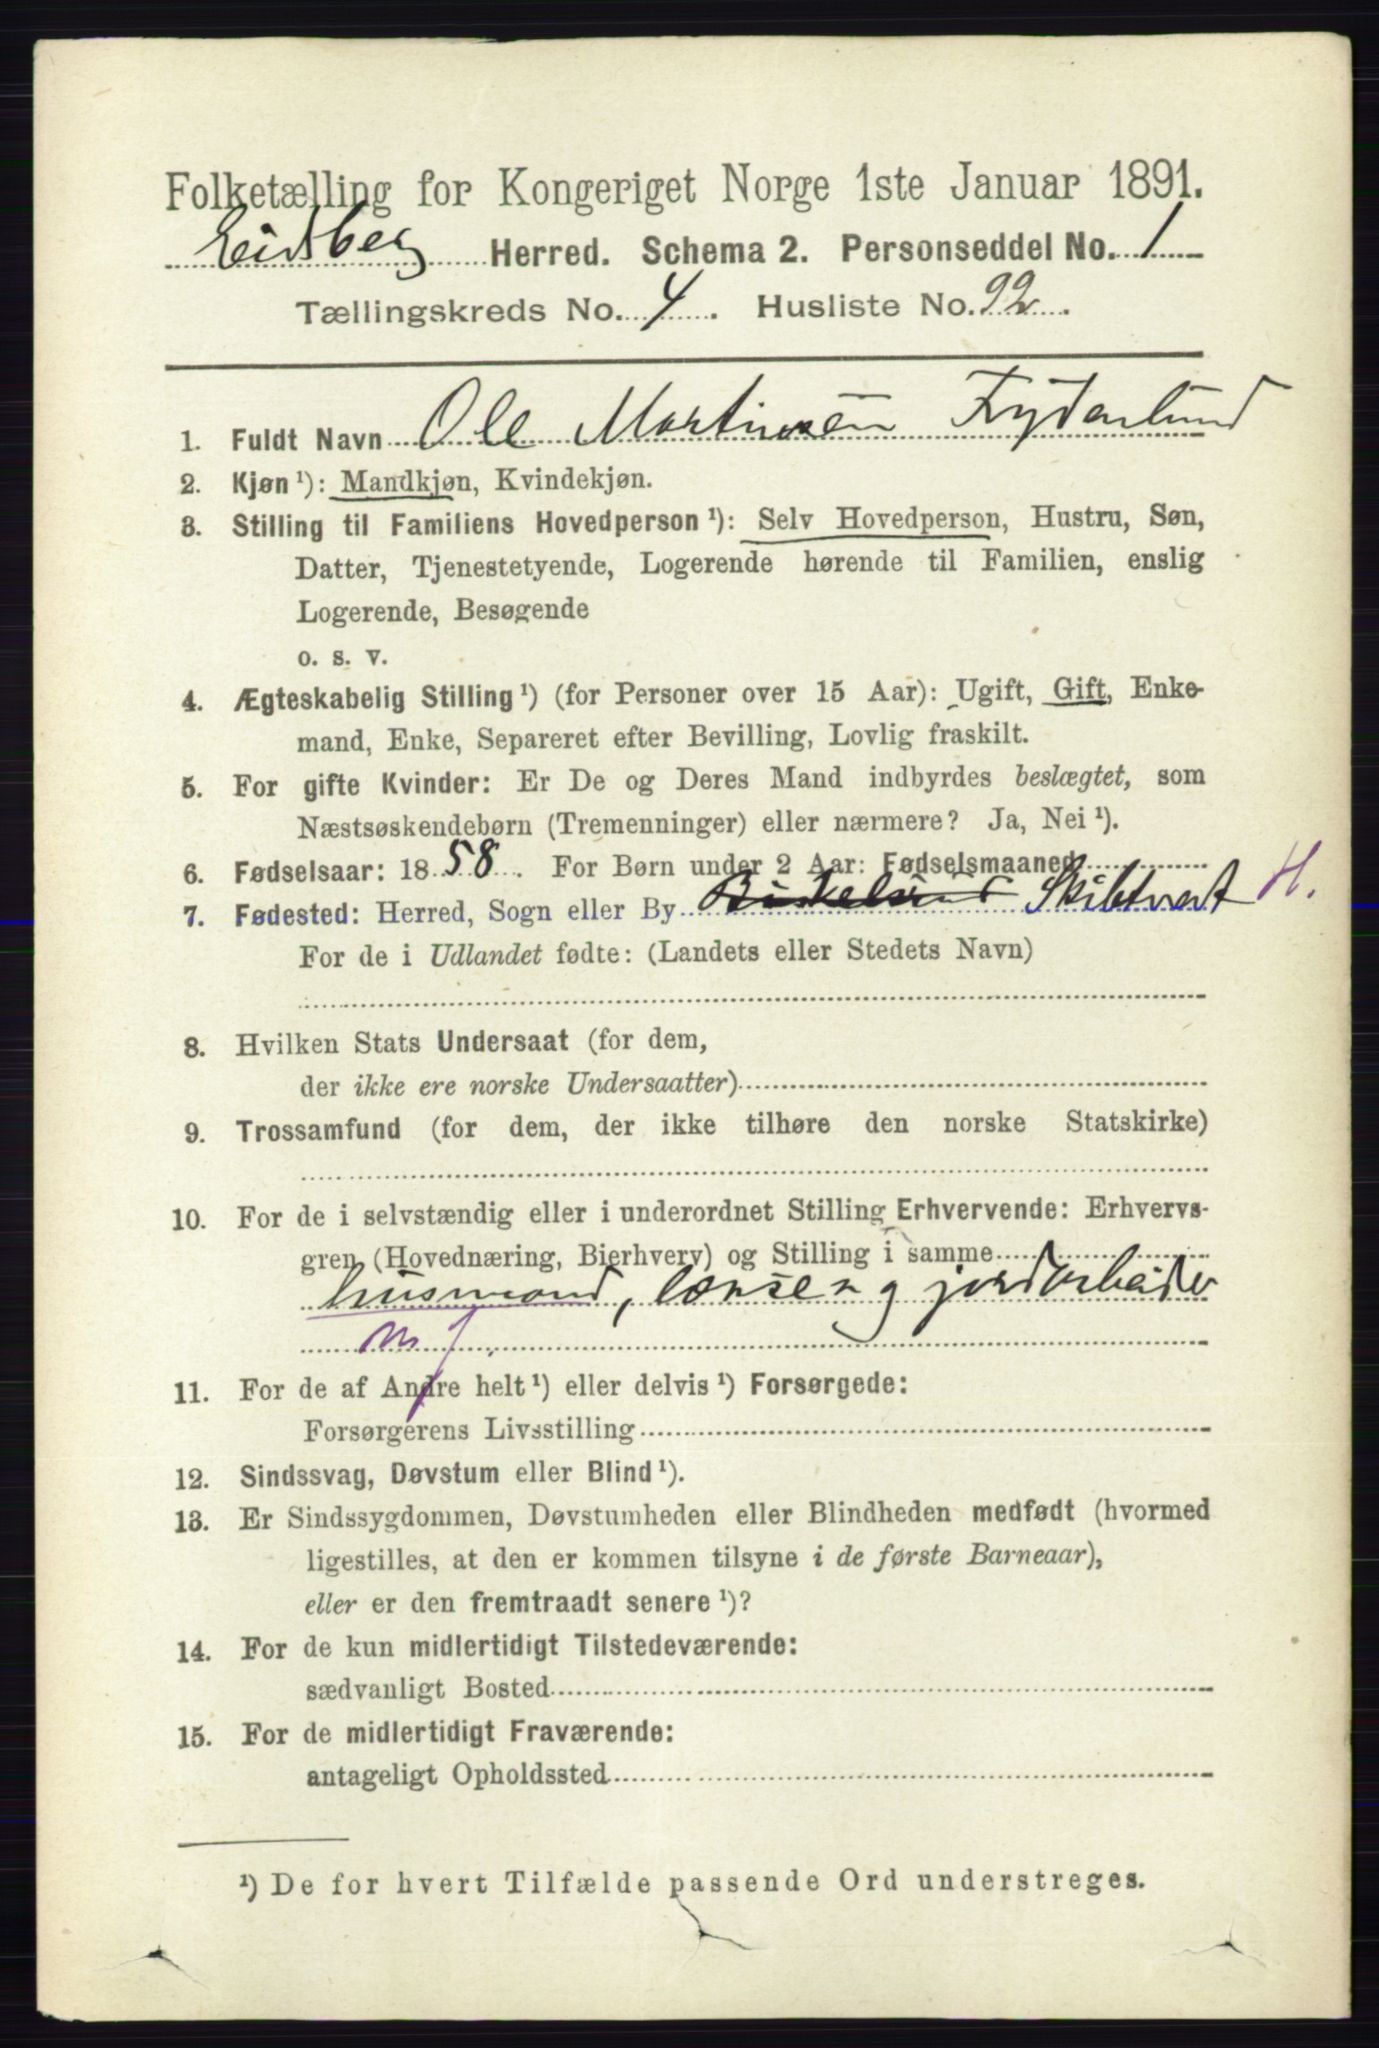 Folketælling for Kongeriget Norge 1ste Januar 1891.
Eidsberg Herred. Schema 2. Personseddel No. 1
Tællingskreds No. 4. Husliste No. 92.
1. Fuldt Navn Ole Martinsen Frydenlund
2. Kjøn ¹): Mandkjøn, Kvindekjøn.
3. Stilling til Familiens Hovedperson ¹): Selv Hovedperson, Hustru, Søn,
Datter, Tjenestetyende, Logerende hørende til Familien, enslig
Logerende, Besøgende
o. s. v.
4. Ægteskabelig Stilling ¹) (for Personer over 15 Aar): Ugift, Gift, Enke-
mand, Enke, Separeret efter Bevilling, Lovlig fraskilt.
5. For gifte Kvinder: Er De og Deres Mand indbyrdes beslægtet, som
Næstsøskendebørn (Tremenninger) eller nærmere? Ja, Nei ¹).
6. Fødselsaar: 1858. For Børn under 2 Aar: Fødselsmaaned
7. Fødested: Herred, Sogn eller By Skibtvet H.
For de i Udlandet fødte: (Landets eller Stedets Navn)
8. Hvilken Stats Undersaat (for dem,
der ikke ere norske Undersaatter)
9. Trossamfund (for dem, der ikke tilhøre den norske Statskirke)
10. For de i selvstændig eller i underordnet Stilling Erhvervende: Erhvervs-
gren (Hovednæring, Bierhverv) og Stilling i samme
husmand, lænse og jordarbeider
m j.
11. For de af Andre helt ¹) eller delvis ¹) Forsørgede:
Forsørgerens Livsstilling
12. Sindssvag, Døvstum eller Blind ¹).
13. Er Sindssygdommen, Døvstumheden eller Blindheden medfødt (hvormed
ligestilles, at den er kommen tilsyne i de første Barneaar),
eller er den fremtraadt senere ¹)?
14. For de kun midlertidigt Tilstedeværende:
sædvanligt Bosted
15. For de midlertidigt Fraværende:
antageligt Opholdssted
¹) De for hvert Tilfælde passende Ord understreges.